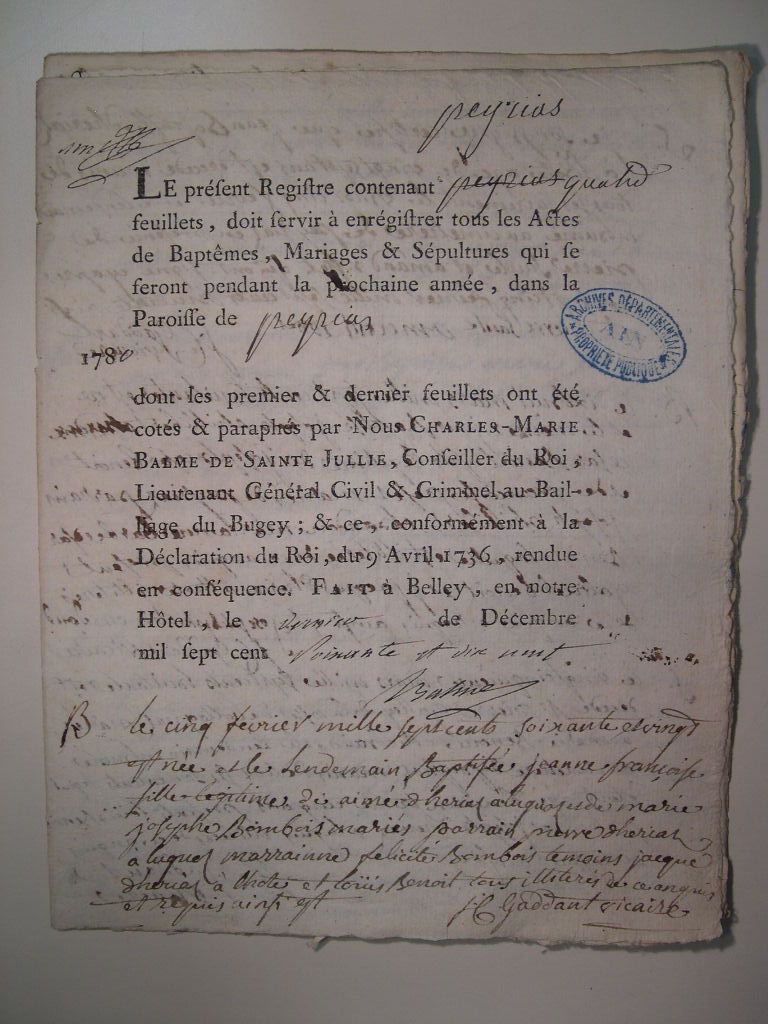 peyrias
LE préſent Regiſtre contenant peyrias quatre
feuillets, doit ſervir à enrégiſtrer tous les Actes
de Baptêmes, Mariages & Sépultures qui ſe
feront pendant la prochaine année, dans la
Paroiſſe de peyrias
ARCHIVES DÉPARTEMENTALES
AIN
PROPRIÉTÉ PUBLIQUE
1780
dont les premier & dernier feuillets ont été
cotés & paraphés par Nous CHARLES-MARIE
BALME DE SAINTE JULLIE, Conſeiller du Roi,
Lieutenant Général Civil & Criminel au Bail-
liage du Bugey; & ce, conformément à la
Déclaration du Roi, du 9 Avril 1736, rendue
en conſéquence. FAIT à Belley, en notre
Hôtel, le dernier de Décembre
mil ſept cent soixante et dix neuf.
Balme
B le cinq fevrier mille sept cents soixante et vingt
est née et le lendemain Baptisée jeanne françoise
fille legitime de aimé dheriat a luquos et de marie
josephe Bombois mariés. parrain pierre dheriat
a luquos marrainne felicité Bombois temoins jacque
dheriat a et loüis Benoit tous illiterés de ce enquis
et requis ainsi est Gaddant vicaire